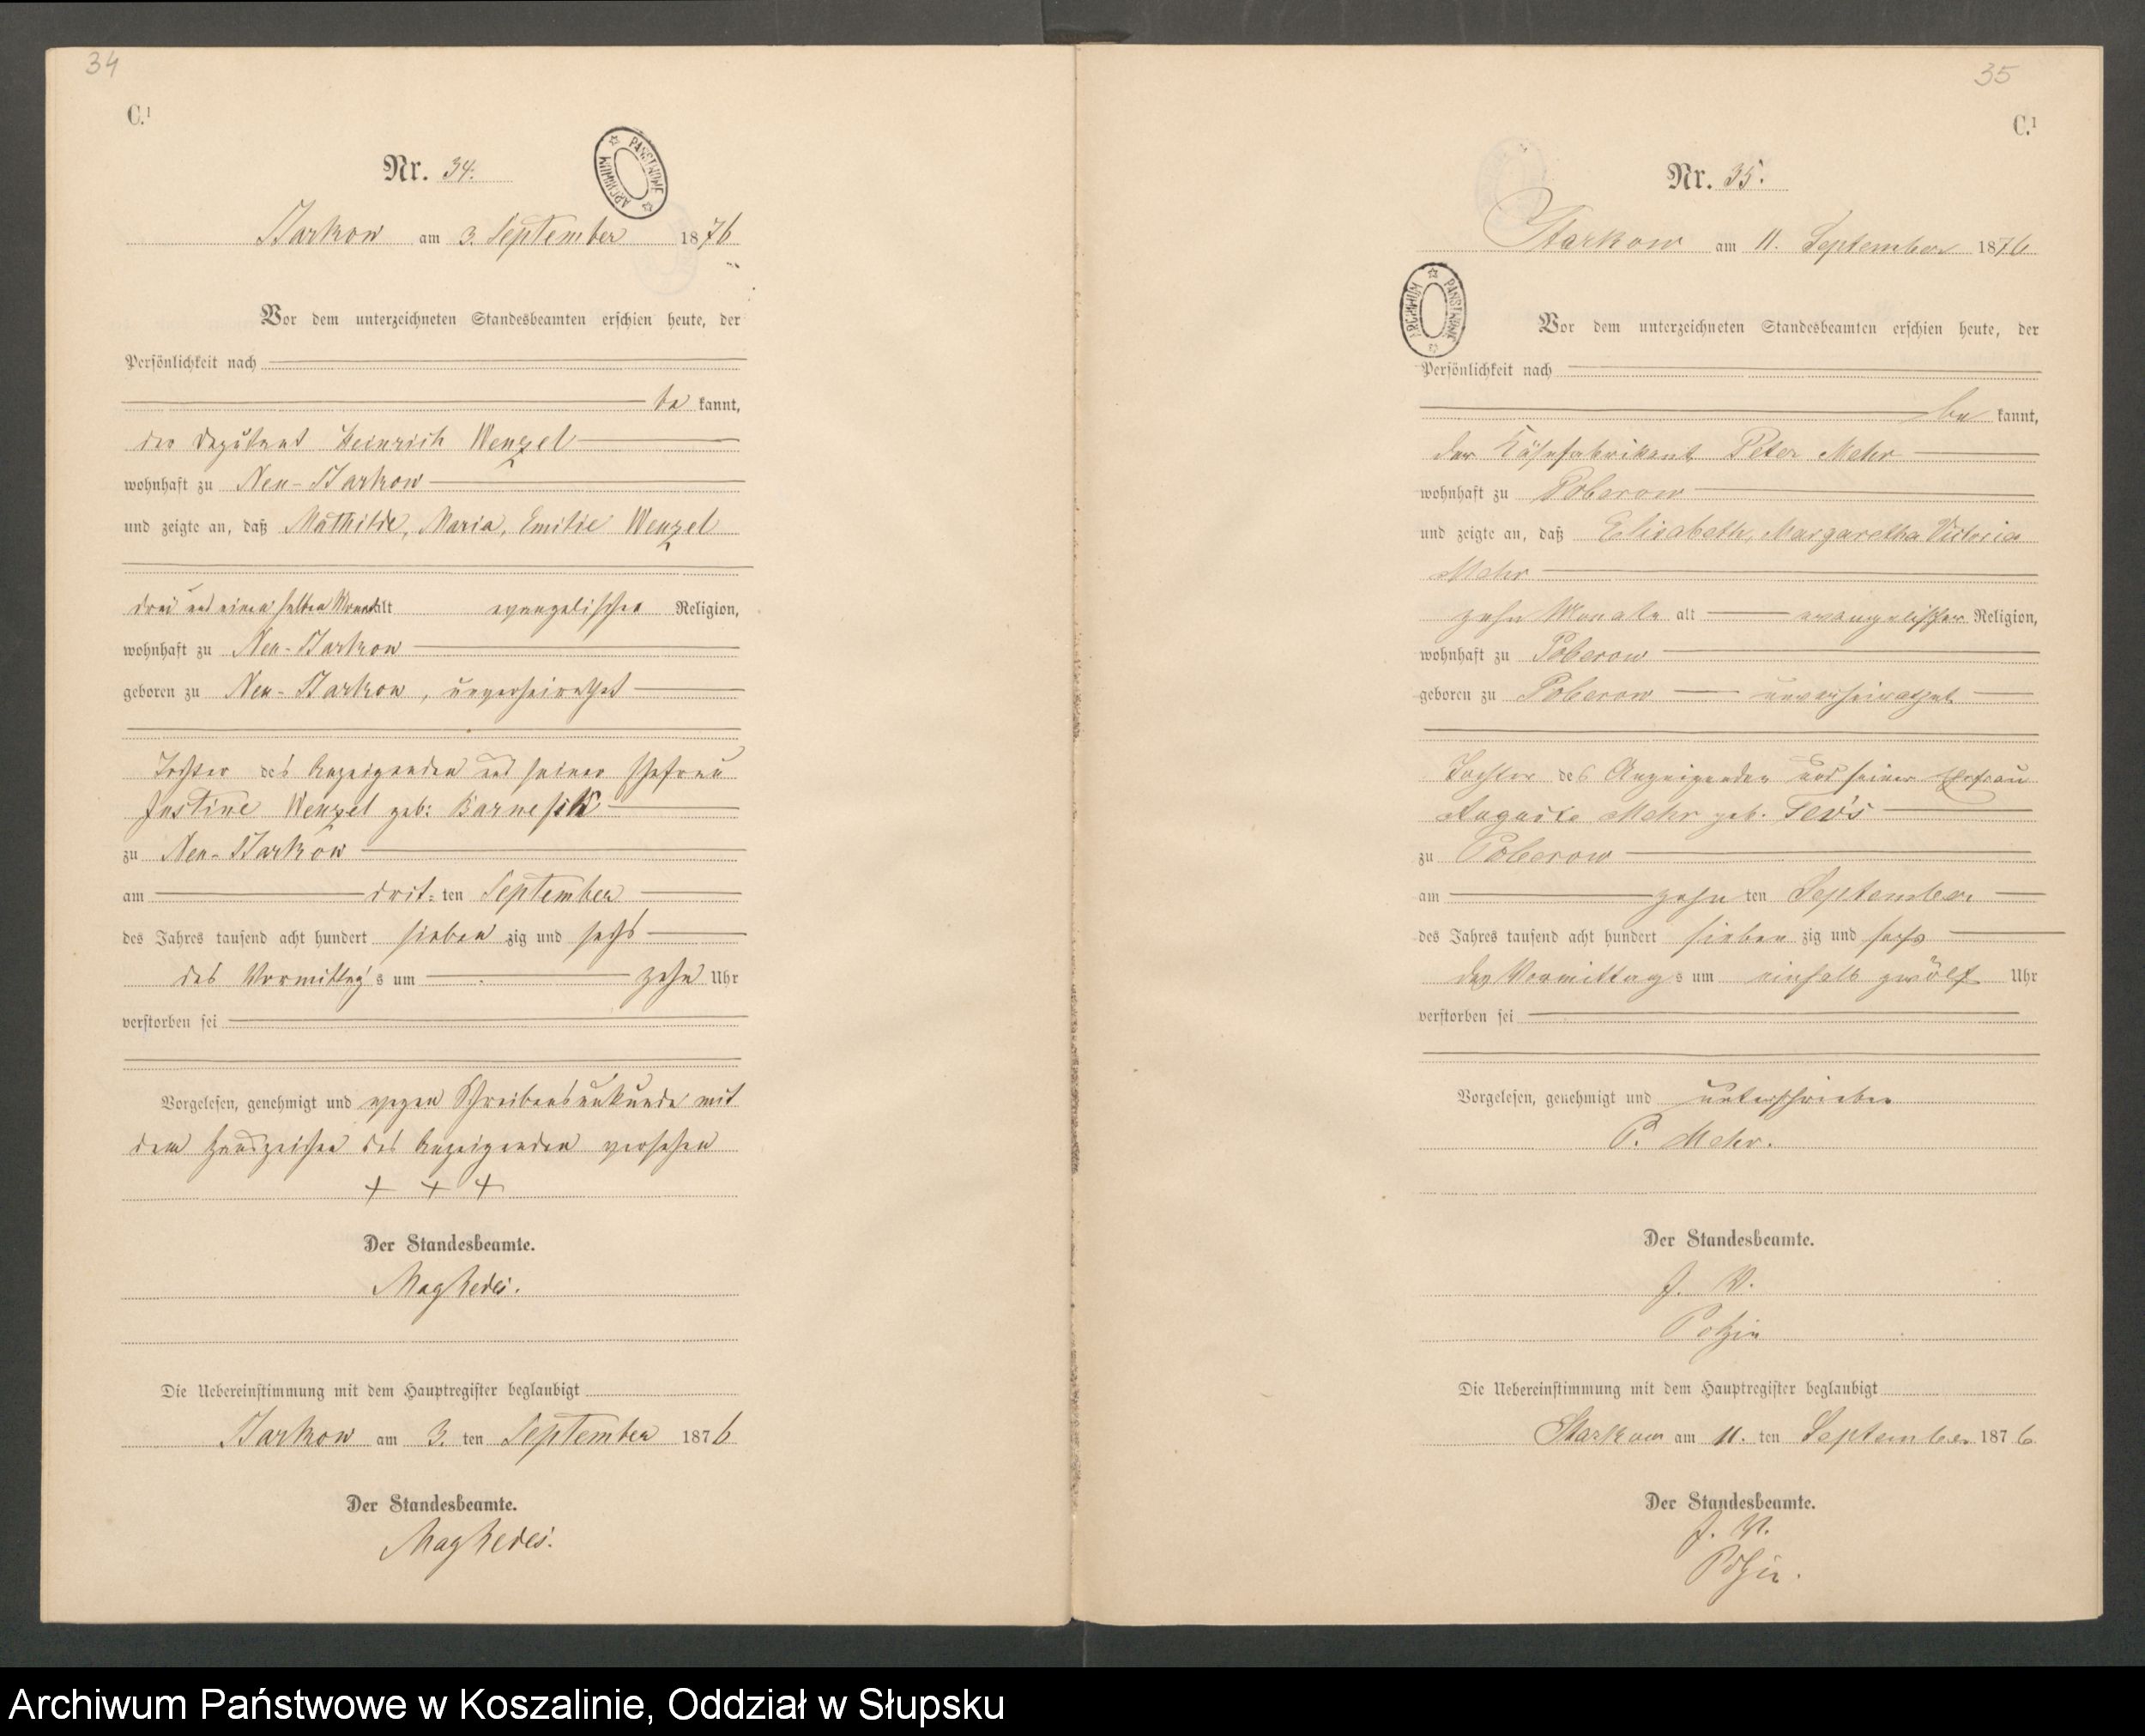 34
C.¹
Nr. 34.
ARCHIWUM PAŃSTWOWE
Starkow am 3. September 1876
Vor dem unterzeichneten Standesbeamten erschien heute, der
Persönlichkeit nach
be kannt,
der Deputant Heinrich Wenzel
wohnhaft zu Neu-Starkow
und zeigte an, daß Mathilde, Maria, Emilie Wenzel
drei und einen halben Monat alt evangelischer Religion,
wohnhaft zu Neu-Starkow
geboren zu Neu-Starkow, unverheirathet
Tochter des Anzeigenden und seiner Ehefrau
Justine Wenzel geb:
zu Neu-Starkow
am drit= ten September
des Jahres tausend acht hundert sieben zig und sechs
des Vormittag's um zehn Uhr
verstorben sei
Vorgelesen, genehmigt und wegen Schreibensunkunde mit
dem Handzeichen des Anzeigenden versehen
+ + +
Der Standesbeamte.
Die Uebereinstimmung mit dem Hauptregister beglaubigt
Starkow am 3. ten September 1876
Der Standesbeamte.
35
C.¹
Nr. 35.
Starkow am 11. September 1876
ARCHIWUM PAŃSTWOWE
Vor dem unterzeichneten Standesbeamten erschien heute, der
Persönlichkeit nach
be kannt,
der Käsefabrikant Peter Mehr
wohnhaft zu Poberow
und zeigte an, daß Elisabeth, Margaretha Victoria
Mehr
zehn Monate alt evangelischer Religion,
wohnhaft zu Poberow
geboren zu Poberow unverheirathet
Tochter des Anzeigenden und seiner Ehefrau
Auguste Mehr geb. Tews
zu Poberow
am zehn ten September
des Jahres tausend acht hundert sieben zig und sechs
des Vormittags um einhalb zwölf Uhr
verstorben sei
Vorgelesen, genehmigt und unterschrieben
P. Mehr.
Der Standesbeamte.
J. V.
Potzin
Die Uebereinstimmung mit dem Hauptregister beglaubigt
Starkow am 11. ten September 1876
Der Standesbeamte.
J. V.
Archiwum Państwowe w Koszalinie, Oddział w Słupsku